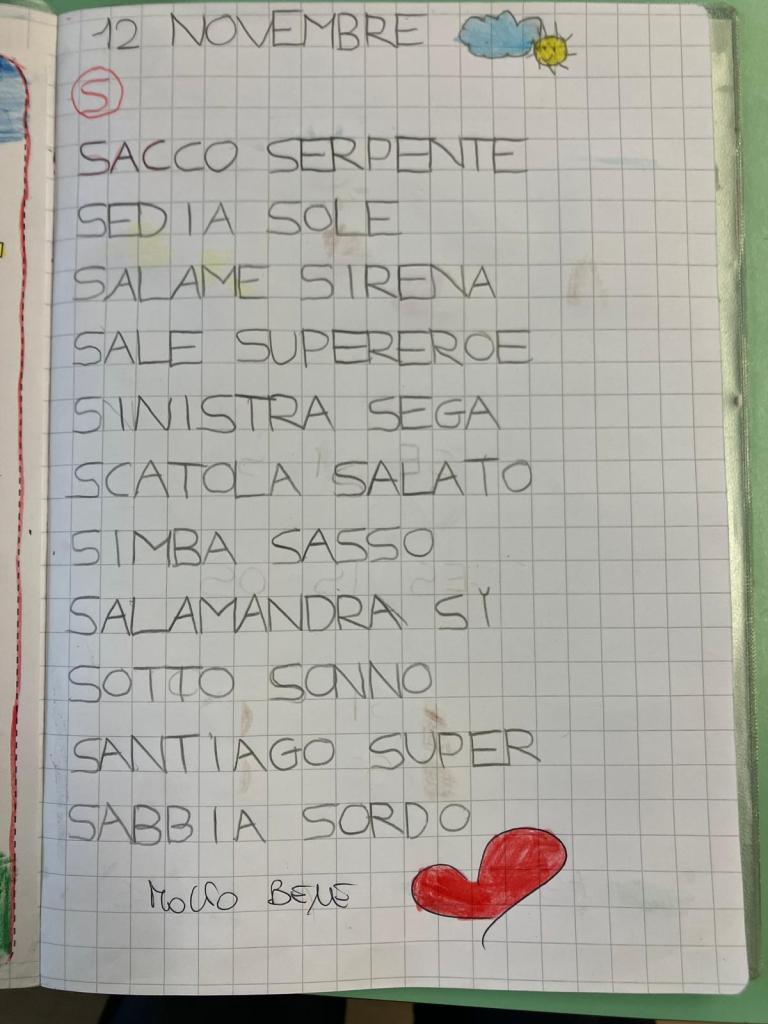 12 NOVEMBRE
S
SACCO SERPENTE
SEDIA SOLE
SALAME SIRENA
SALE SUPEREROE
SINISTRA SEGA
SCATOLA SALATO
SIMBA SASSO
SALAMANDRA SÌ
SOTTO SONNO
SANTIAGO SUPER
SABBIA SORDO
MOLTO BENE